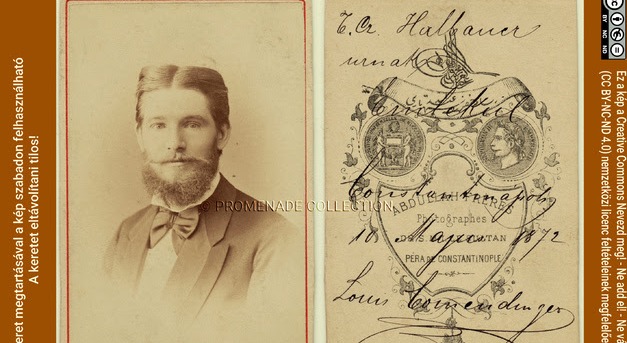 keret megtartásával a kép szabadon felhasználható
A keretet eltávolítani tilos!
© PROMENADE COLLECTION
T. Cz. Halbauer
urnak
Emlékül
Constantinápoly
ABDULLAH FRÈRES
Photographes
DE S. M. LE SULTAN
10 Majus 1872
PERA DE CONSTANTINOPLE
Louis
BY NC ND
Ez a kép a Creative Commons Nevezd meg! - Ne add el! - Ne
(CC BY-NC-ND 4.0) nemzetközi licenc feltételeinek megfelelően